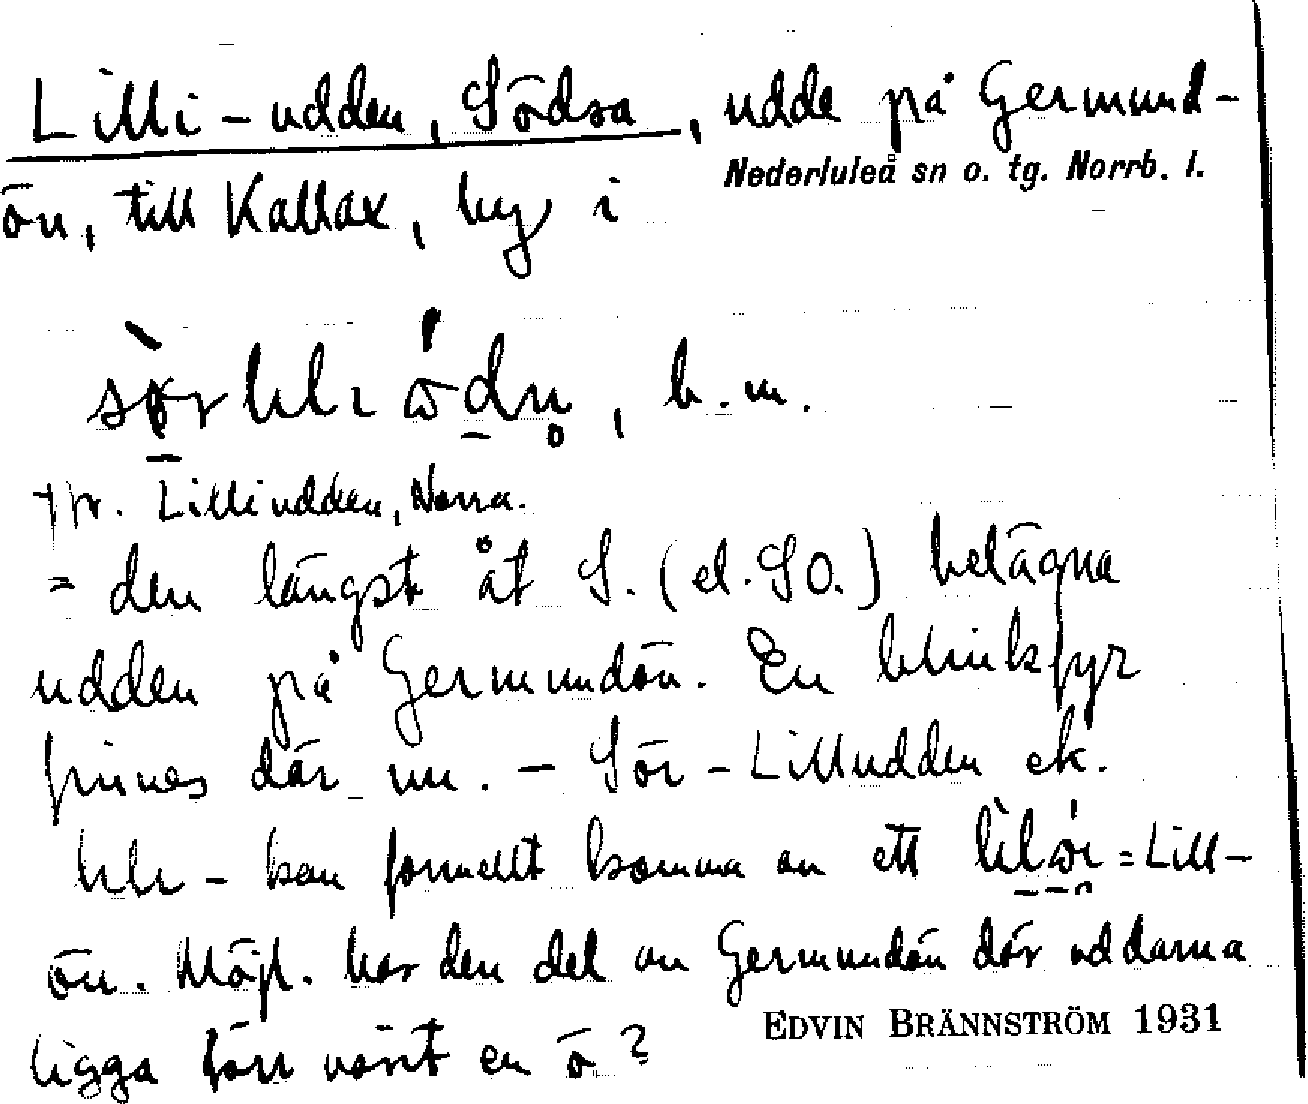 Lilli-udden, Södra, udde på Germund-
Nederluleå sn o. tg. Norrb. l.
ön, till Kallax, by i
b.m.
jfr. Lilliudden, Norra.
= den längst åt S. (el. SO.) belägna
udden på Germundön. En blinkfyr
finnes där nu. – Sör-Lilludden ek.
lılı- kan formellt komma av ett = Lill-
ön. Möjl. har den del av Germundön där uddarna
ligga förr varit en ö?
EDVIN BRÄNNSTRÖM 1931